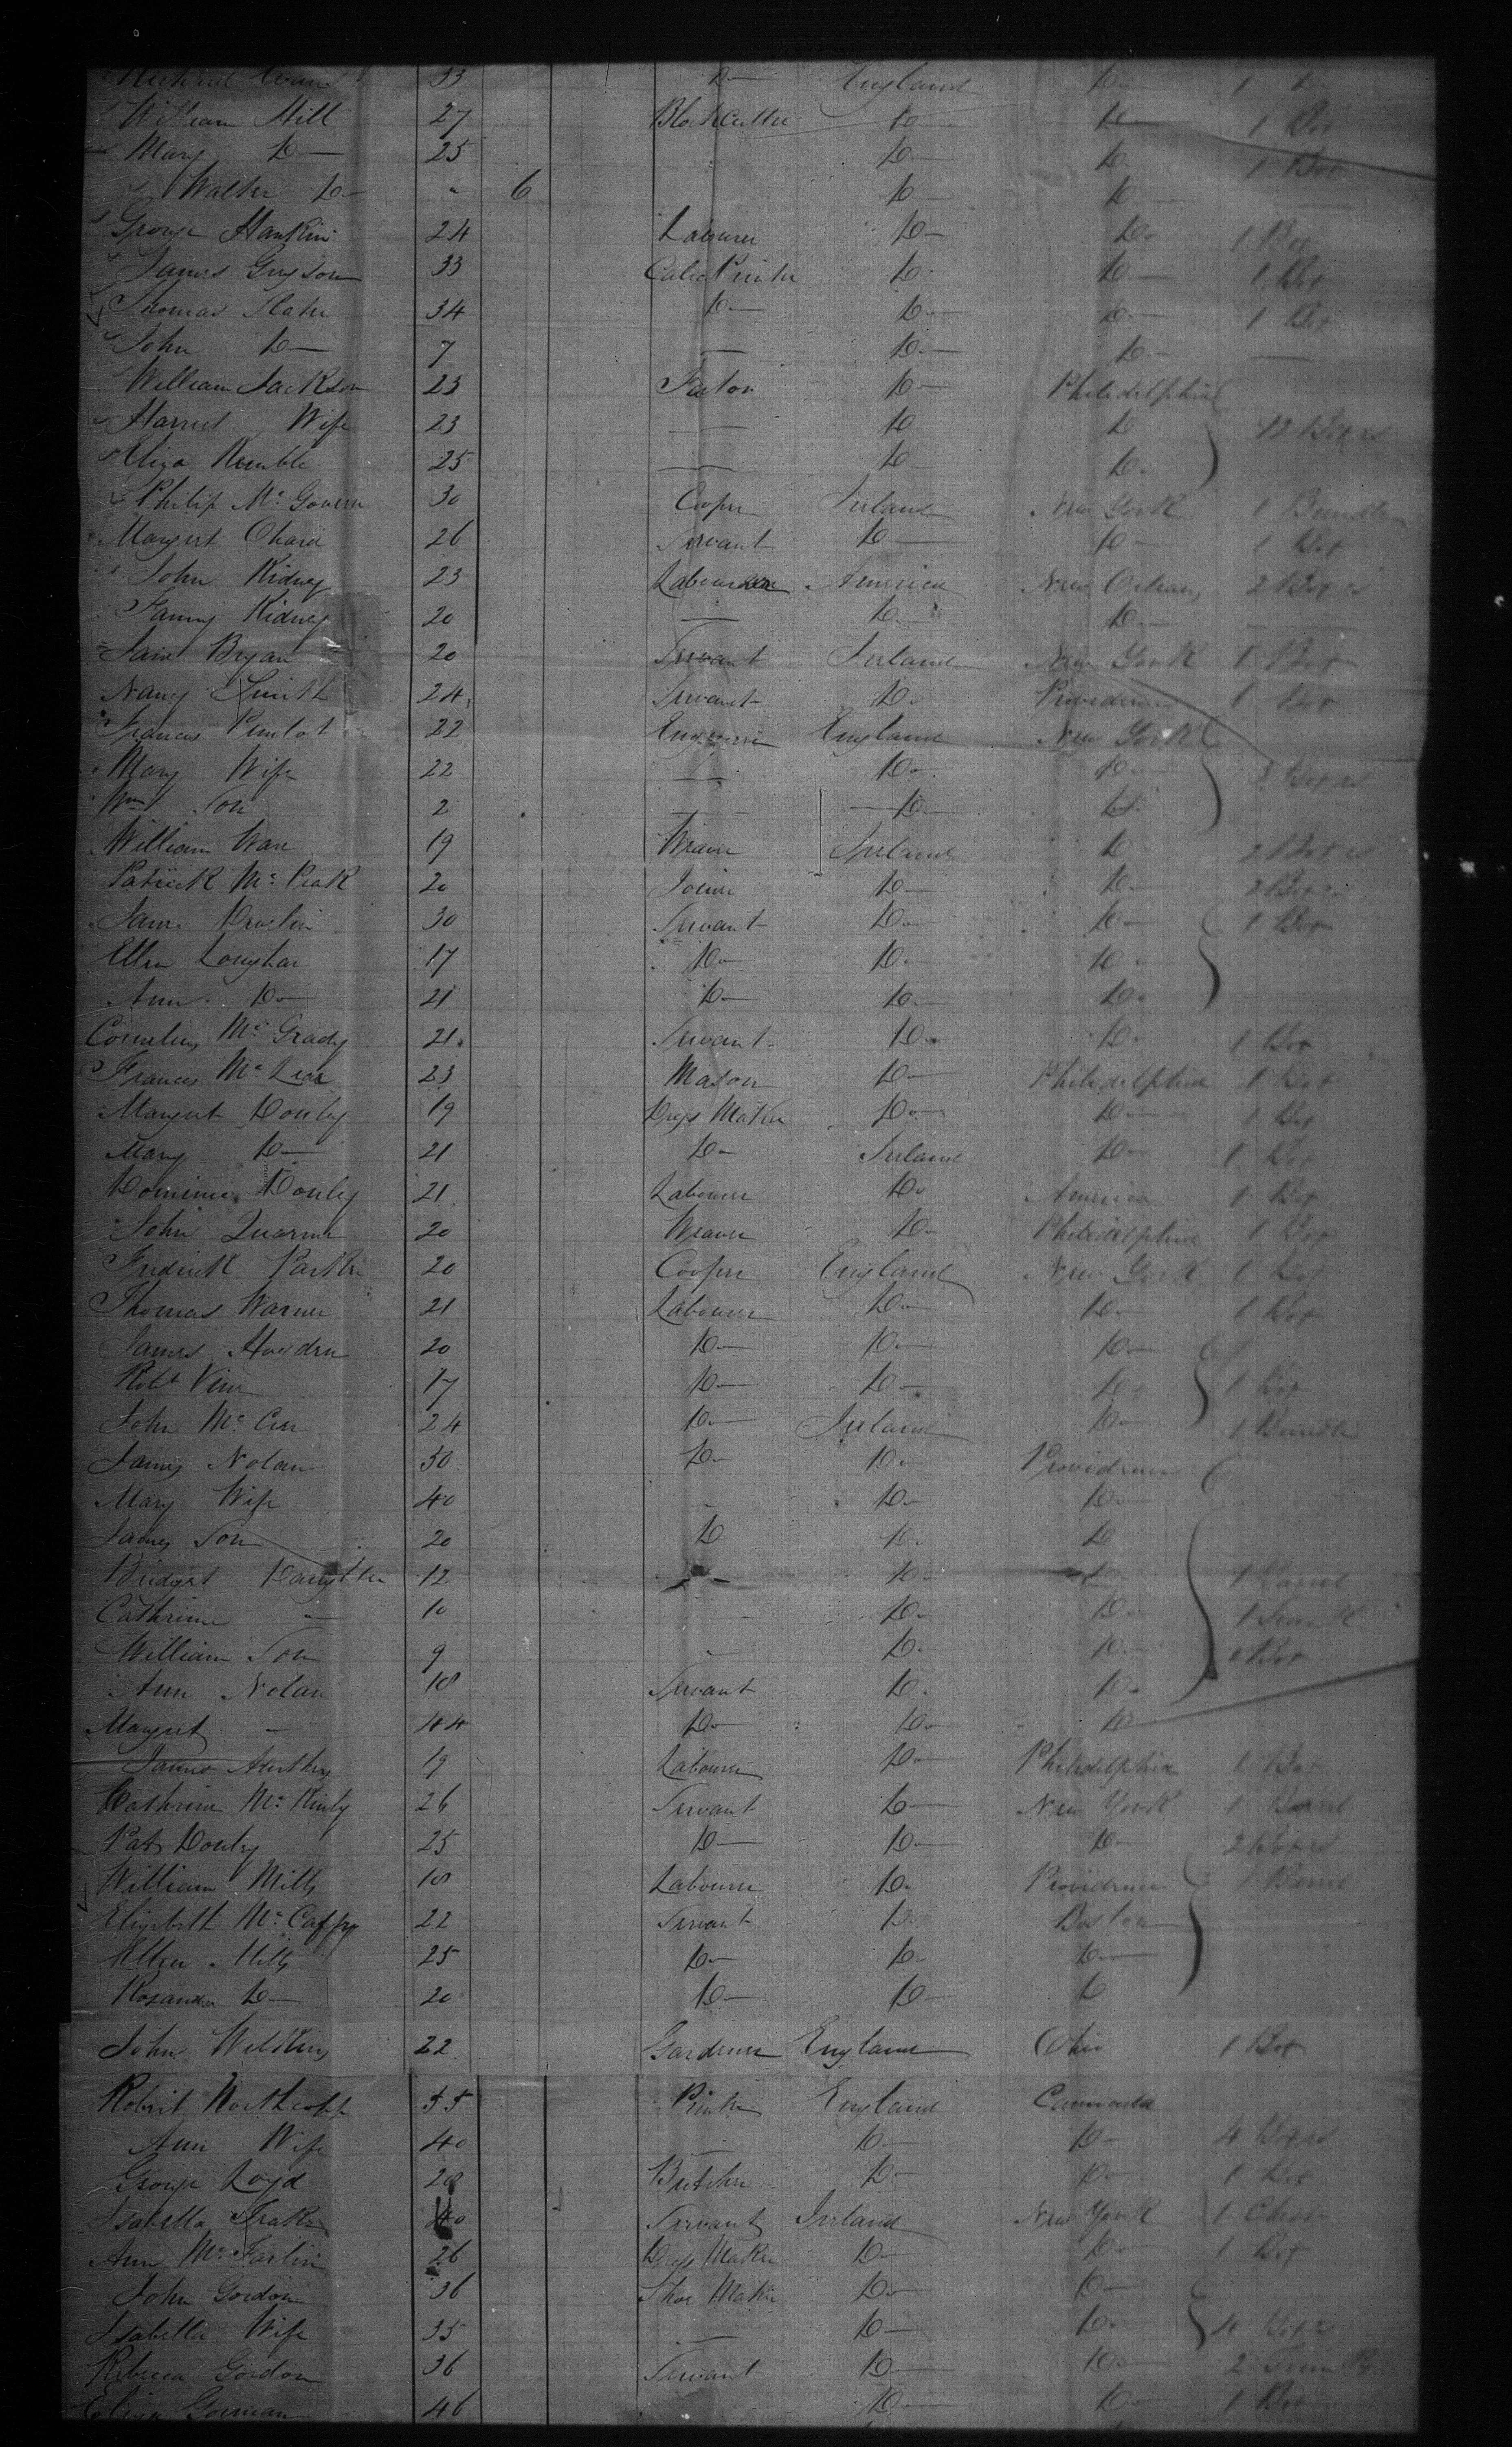 33 Do England Do 1 Do
William Hill 27 Blockcutter Do Do 1 Box
Mary Do 25 Do Do 1 Box
Walter Do " 6 Do Do
George Hankin 24 Labourer Do Do 1 Box
James Grayson 33 Calico Printer Do Do 1 Box
Thomas Slater 34 Do Do Do 1 Box
John Do 7 — Do Do —
William Jackson 23 Do Philadelphia
Harriet Wife 23 — Do Do 12 Boxes
Eliza Kemble 25 — Do Do
Philip Mc Govern 30 Cooper Ireland New York 1 Bundle
Margert 26 Servant Do Do 1 Box
John Kidney 23 America New Orleans 2 Boxes
Fanny Kidney 20 — Do Do —
Jane Bryan 20 Servant Ireland New York 1 Box
Nancy Smith 24 Servant Do Providence 1 Box
Frances 22 England New York
Mary Wife 22 — Do Do 3 Boxes
Wm Son 2 — Do Do
William Ware 19 Weaver Ireland Do 2 Boxes
Patrick Mc Peak 20 Joiner Do Do 2 Boxes
30 Servant Do Do 1 Box
Ellen 17 Do Do Do
Ann Do 21 Do Do Do
Cornelius Mc Grady 21 Servant Do Do 1 Box
Frances Mc 23 Mason Do Philadelphia 1 Box
Margert Donley 19 Dress Maker Do Do 1 Box
Mary Do 21 Do Ireland Do 1 Box
Donley 21 Labourer Do America 1 Box
John 20 Weaver Do Philadelphia 1 Box
Fredrick Parker 20 Cooper England New York 1 Box
Thomas Warner 21 Labourer Do Do 1 Box
James 20 Do Do Do
Robt 17 Do Do Do 1 Box
John Mc 24 Do Ireland Do 1 Bundle
James Nolan 50 Do Do Providence
Mary Wife 40 Do Do
James Son 20 Do Do Do
Bridget Daughter 12 — Do Do 1 Barrel
Cathrine — 10 Do Do
William Son 9 — Do Do Box
Ann Nolan 18 Servant Do Do
Margret — 44 Do Do Do
James 19 Labourer Do Philadelphia 1 Box
Cathrine Mc Kinly 26 Servant Do New York 1 Barrel
Pat Donley 25 Do Do Do 2 Boxes
William Mills 18 Labourer Do Providence 1 Barrel
Elizabeth Mc Caffry 22 Servant Do Boston
Ellen Mills 25 Do Do Do
Rosanna Do 20 Do Do Do
John Wilkins 22 Gardener England Ohio 1 Box
Robert Northcott 55 England Cannada
Ann Wife 40 — Do Do 4 Boxes
George Loyd 28 Butcher Do Do 1 Box
Isabella 40 Servant Ireland New York 1 Chest
Ann Mc Farlin 26 Dress Maker Do Do 1 Box
John Gordon 36 Shoe Maker Do Do
Isabella Wife 35 — Do Do 4 Boxes
Rebecca Gordon 36 Servant Do Do 2
Eliza Gorman 46 Do Do 1 Box